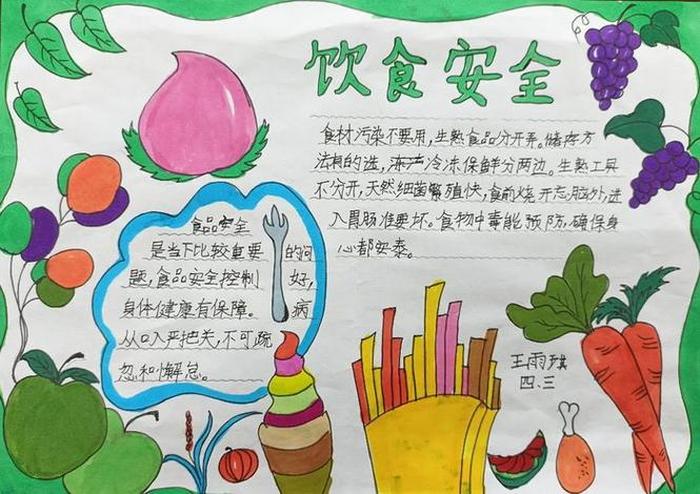 饮食安全
食材污染不要用,生熟食品分开弄。储存方
法相的选,冷冻保鲜分两边。生熟工具
不分开,天然细菌繁殖快,食前烧开忘脑外,进
入胃肠准要坏。食物中毒能预防,确保身
心都安泰。
食品安全
是当下比较重要的问
题,食品安全控制好,
身体健康有保障。病
从口入严把关,不可疏
忽和懈怠。
王雨琪
四.三